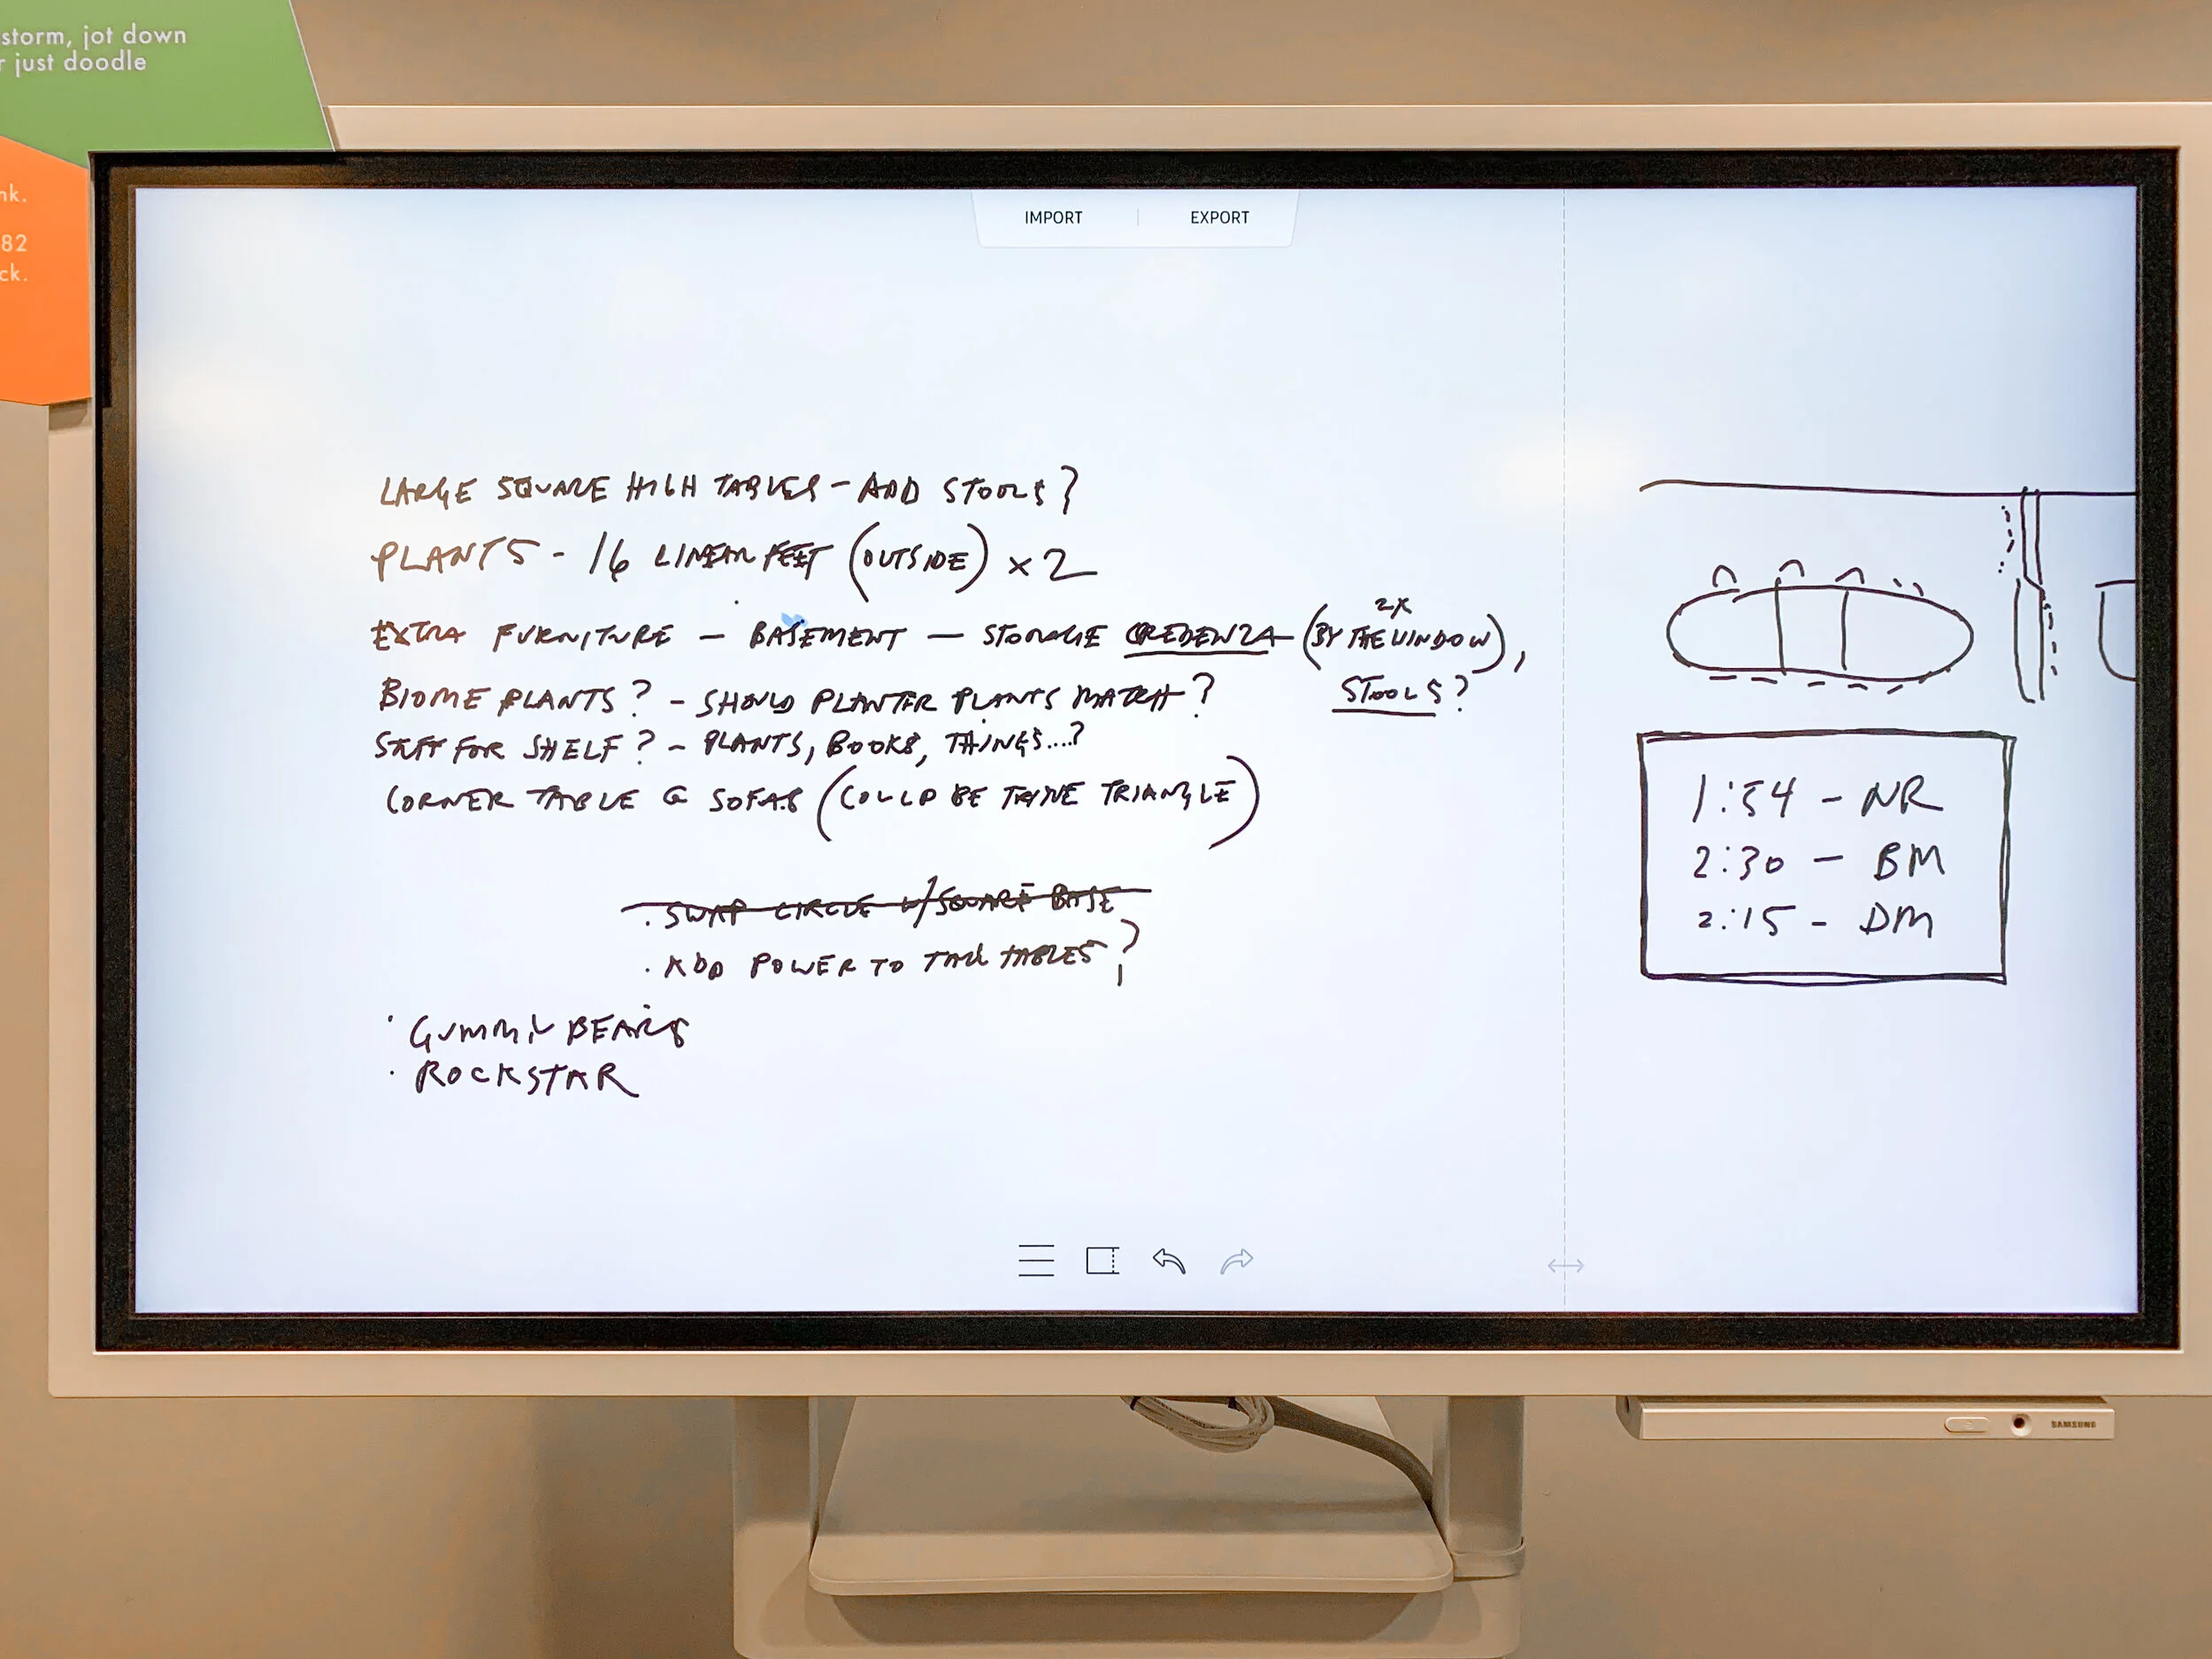 storm, jot down
r just doodle
nk.
82
ck.
IMPORT EXPORT
LARGE SQUARE HIGH TABLES - ADD STOOLS?
PLANTS - 16 LINEAR FEET (OUTSIDE) x 2
EXTRA FURNITURE - BASEMENT - STORAGE CREDENZA (BY THE WINDOW),
2X
STOOLS?
BIOME PLANTS? - SHOULD PLANTER PLANTS MATCH?
STUFF FOR SHELF? - PLANTS, BOOKS, THINGS...?
CORNER TABLE @ SOFAS (COULD BE TRIANGLE)
. SWAP CIRCLE W/ SQUARE BASE
. ADD POWER TO TALL TABLES?
· GUMMY BEARS
· ROCKSTAR
1:54 - NR
2:30 - BM
2:15 - DM
SAMSUNG